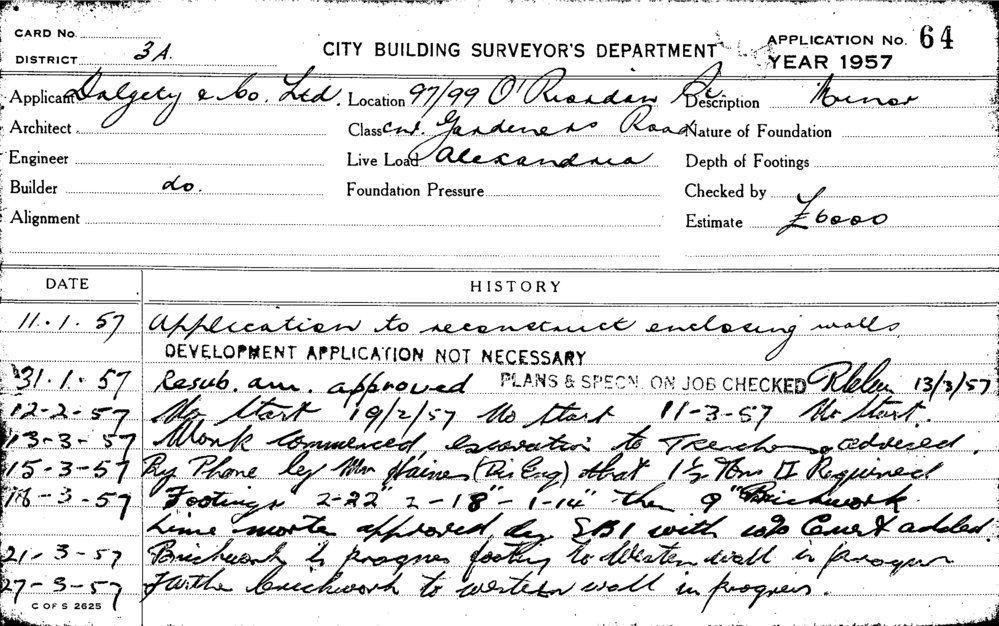 CARD No.
DISTRICT 3A.
CITY BUILDING SURVEYOR'S DEPARTMENT
APPLICATION No. 64
YEAR 1957
Applicant Dalgety & Co. Ltd. Location 97/99 O'Riordan St Description Minor
Architect Class cnr. Gardeners Road Nature of Foundation
Engineer Live Load Alexandria Depth of Footings
Builder do. Foundation Pressure Checked by
Alignment Estimate £6000
DATE HISTORY
11.1.57 Application to reconstruct enclosing walls
DEVELOPMENT APPLICATION NOT NECESSARY
31.1.57 Resub. am. approved PLANS & SPECN. ON JOB CHECKED 13/3/57
12-2-57 No Start 19/2/57 No Start 11-3-57 No Start.
13-3-57 Work Commenced, excavation to Trench advised.
15-3-57 By Phone by Haines (Dis Eng) that 1½ Required
18-3-57 Footings 2-22" 2-18" 1-14" then 9" Brickwork
Lime morter approved by SBI with 10% added.
21-3-57 Brickwork in progres footing to Western wall in progress
27-3-57 Further brickwork to western wall in progress.
C OF S 2625